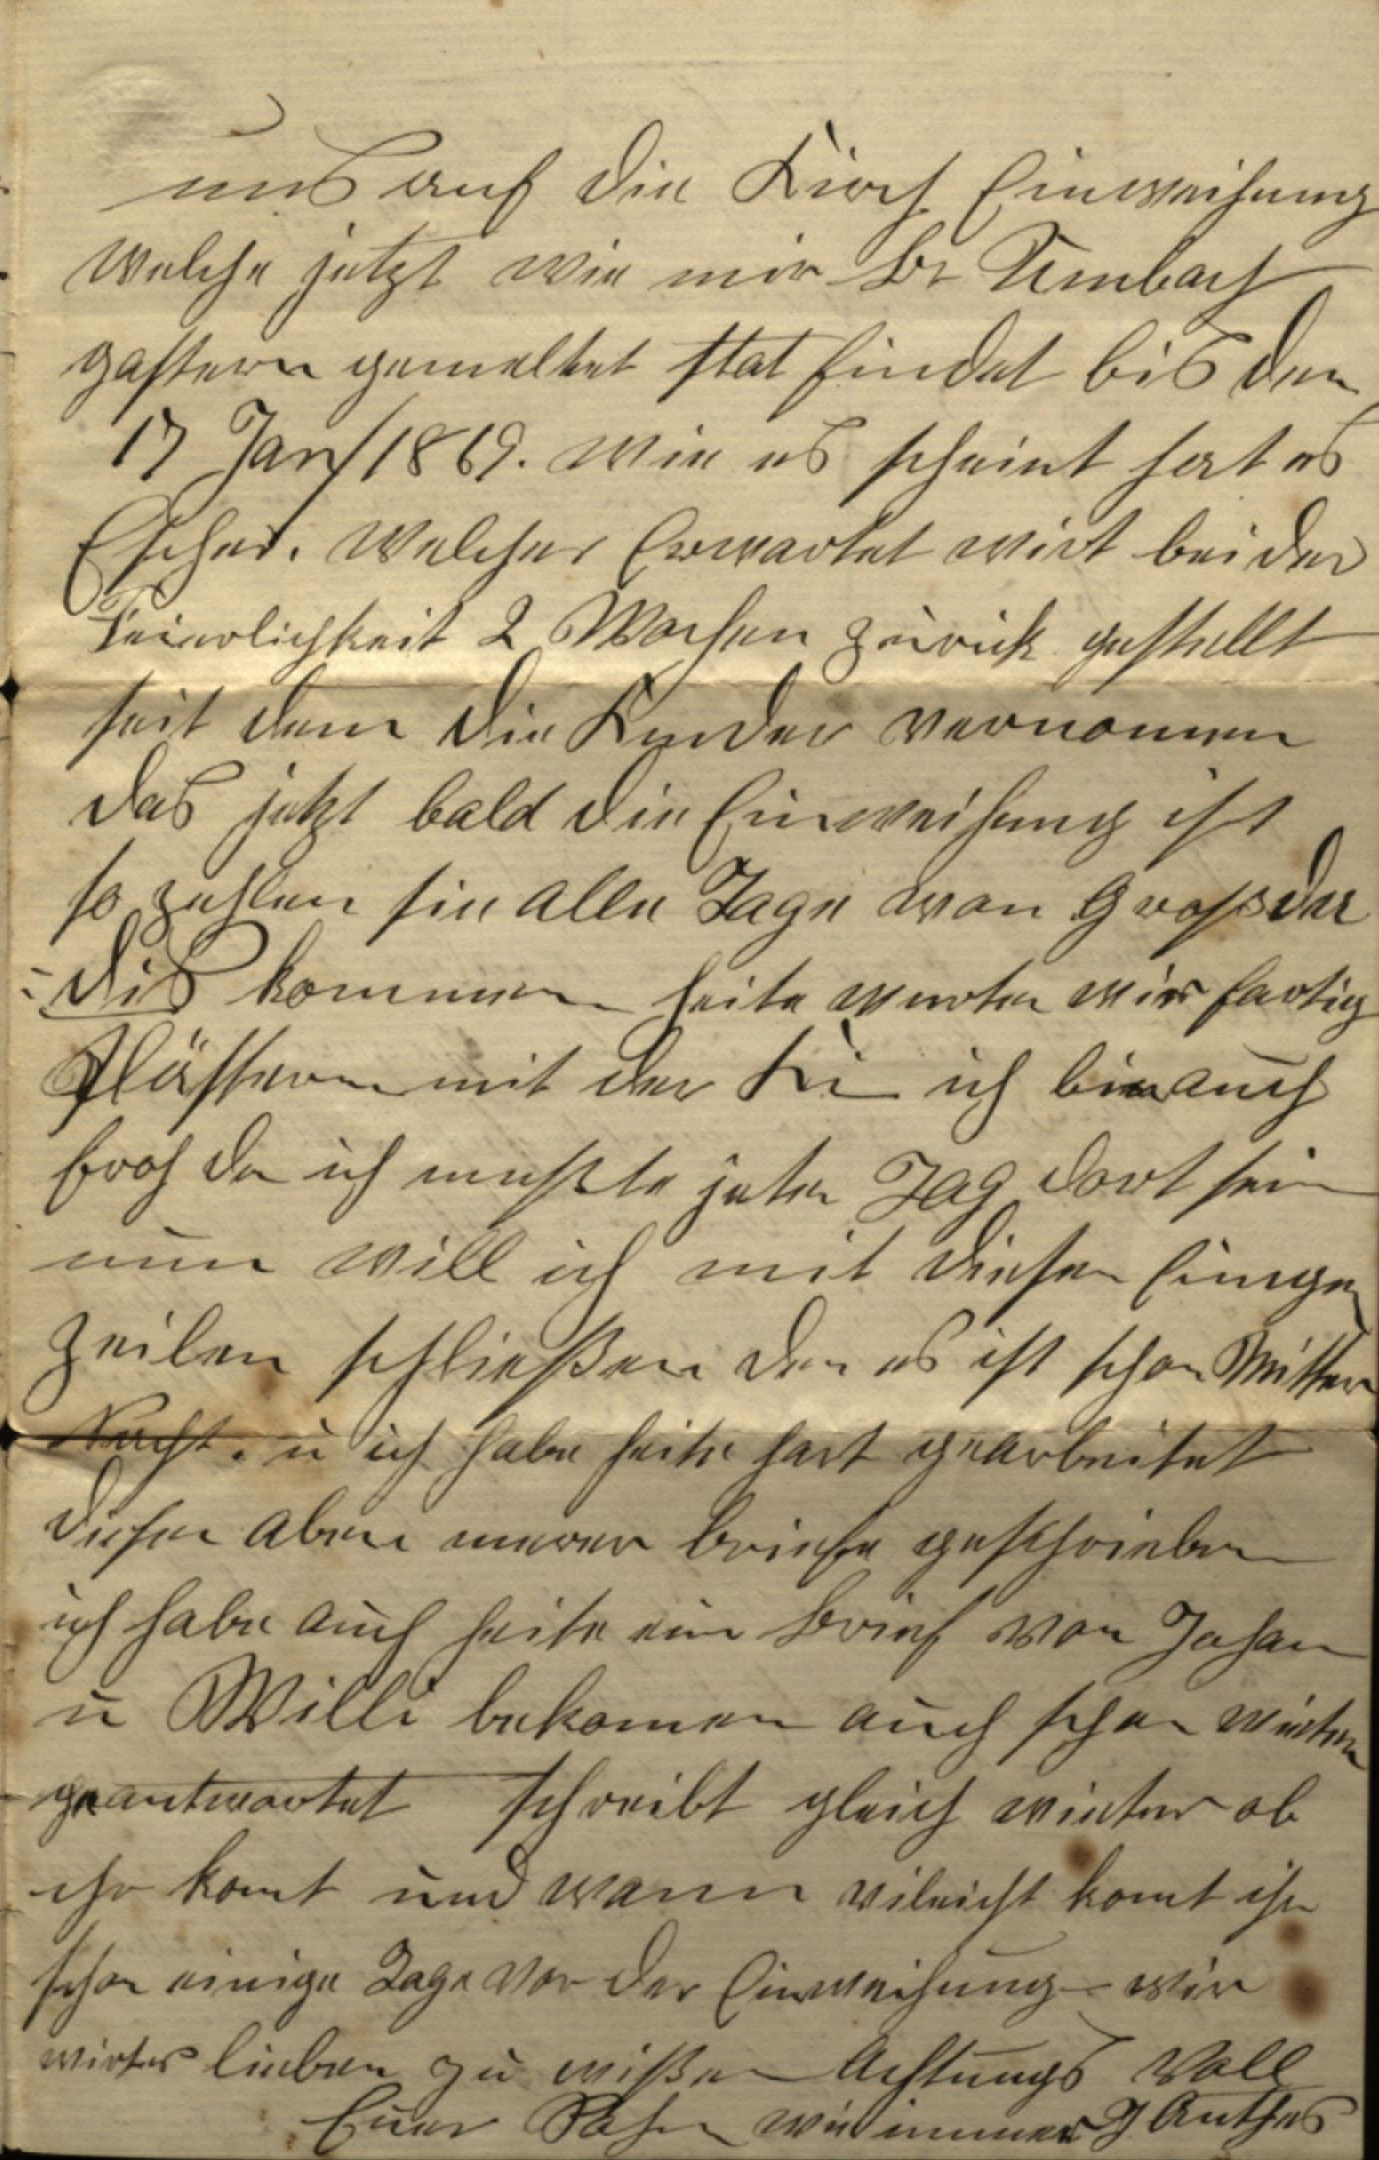 uns auf die Kirch Einweihung
welche jetzt wie mir Br Umbach
gestern gemeltet stat findet bis den
17 Jan/1869. wie es scheint hat es
Escher. welcher Erwartet wirt bei der
Feierlichkeit 2 Wochen zurück gestellt
seit dem die Kinder vernomen
das jetzt bald die Einweihung ist
so zehlen sie alle Tage wan Großder
dis kommen heite werten wir fertig
plästern mit der Ki ich bin auch
froh den ich mußte jeten Tag dort sein
nun will ich mit diesen Einigen
Zeilen schließen den es ist schon Mitter
Nacht. u ich habe heite hart gearbeitet
diesen Abent merer briefe geschrieben
ich habe auch heite ein brief von Johan
u Willi bekomen auch schon wieter
geantwortet schreibt gleich wieter ob
ihr komt und wann vileicht komt ihr
schon einige Tage vor der Einweihung wir
wirten lieben zu wißen Achtungs Voll
Euer Sohn wie immer J Anthes